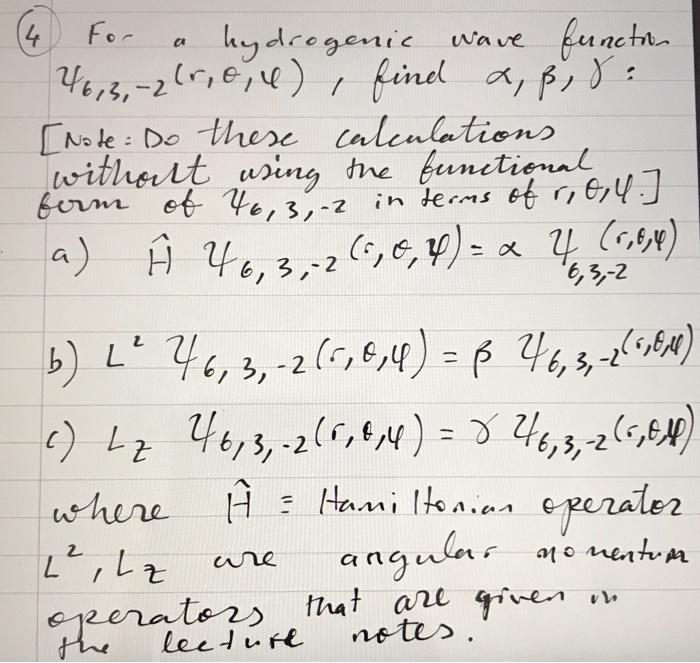 ④ For a hydrogenic wave function
Ψ6,3,-2(r,θ,φ), find α, β, γ:
[Note: Do these calculations
without using the functional
form of Ψ6,3,-2 in terms of r,θ,φ.]
a) Ĥ Ψ6,3,-2(r,θ,φ) = α Ψ6,3,-2(r,θ,φ)
b) L² Ψ6,3,-2(r,θ,φ) = β Ψ6,3,-2(r,θ,φ)
c) Lz Ψ6,3,-2(r,θ,φ) = γ Ψ6,3,-2(r,θ,φ)
where Ĥ ≡ Hamiltonian operator
L², Lz are angular momentum
operators that are given in
the lecture notes.